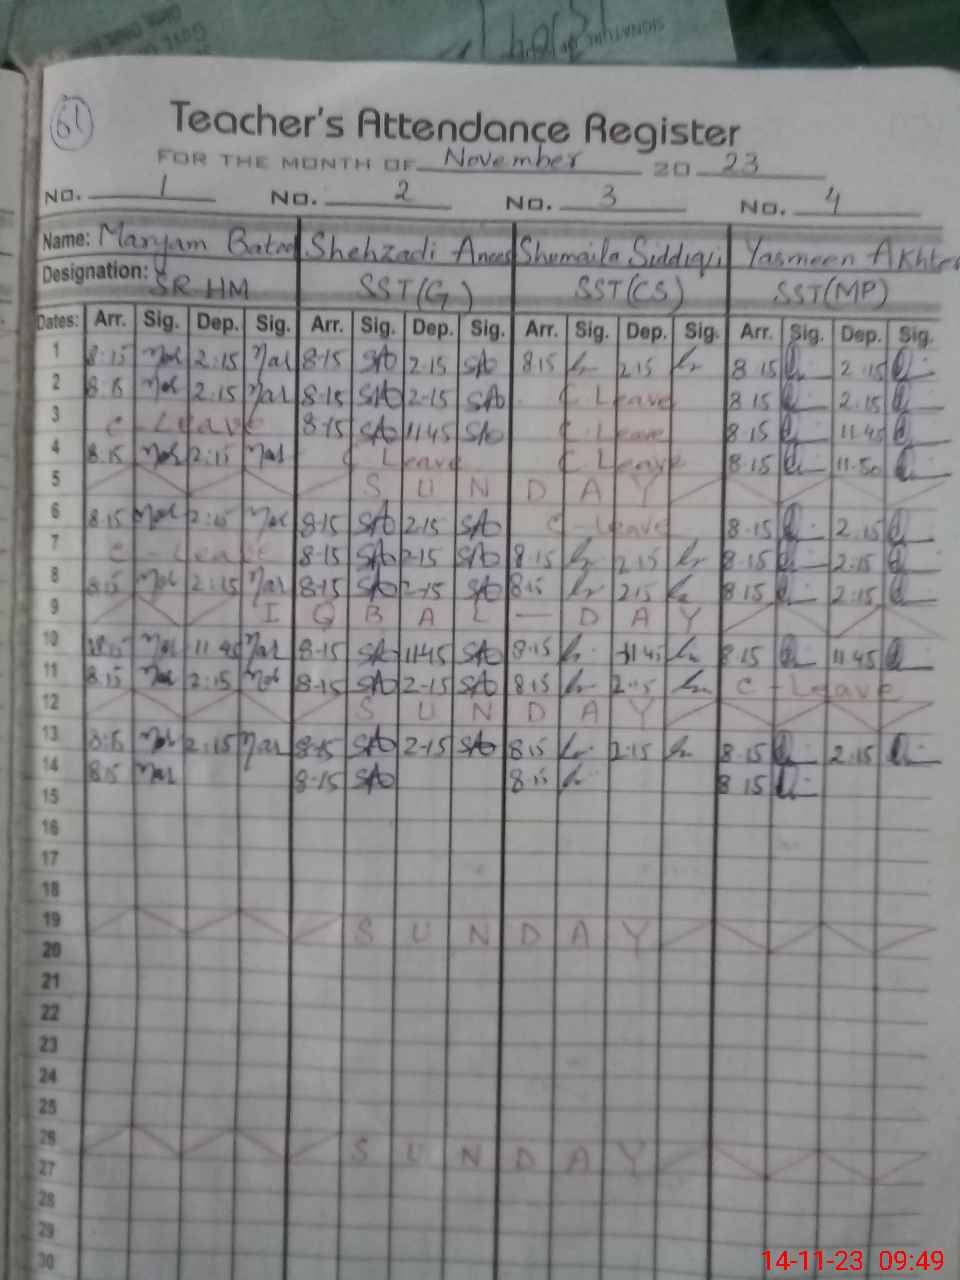 61
Teacher's Attendance Register
FOR THE MONTH OF November 20 23
NO. 1 NO. 2 NO. 3 NO. 4
Name: Maryam Batool Shehzadi Anees Shumaila Siddiqui Yasmeen Akhter
Designation: SR HM SST(G) SST(CS) SST(MP)
Dates: Arr. Sig. Dep. Sig. Arr. Sig. Dep. Sig. Arr. Sig. Dep. Sig. Arr. Sig. Dep. Sig.
1 8:15 2:15 8-15 2-15 8 15 2 15 8 15 2 15
2 8:15 2:15 8-15 2-15 C Leave 8 15 2.15
3 C Leave 8-15 1145 C Leave 8.15 11.45
4 8:15 2:15 C Leave C Leave 8.15 11.50
5 SUNDAY
6 8:15 2:15 8-15 2-15 C-Leave 8.15 2.15
7 C-Leave 8-15 2-15 8.15 2.15 8.15 2:15
8 8:15 2:15 8-15 2-15 8:15 2:15 8.15 2:15
9 IQBAL - DAY
10 11 45 8-15 1145 8.15 11 45 8 15 11 45
11 8:15 2:15 8-15 2-15 8:15 2:15 C-Leave
12 SUNDAY
13 8:15 2:15 8-15 2-15 8:15 2:15 8.15 2.15
14 8:15 8-15 8:15 8 15
15
16
17
18
19 SUNDAY
20
21
22
23
24
25
26 SUNDAY
27
28
29
30
14-11-23 09:49